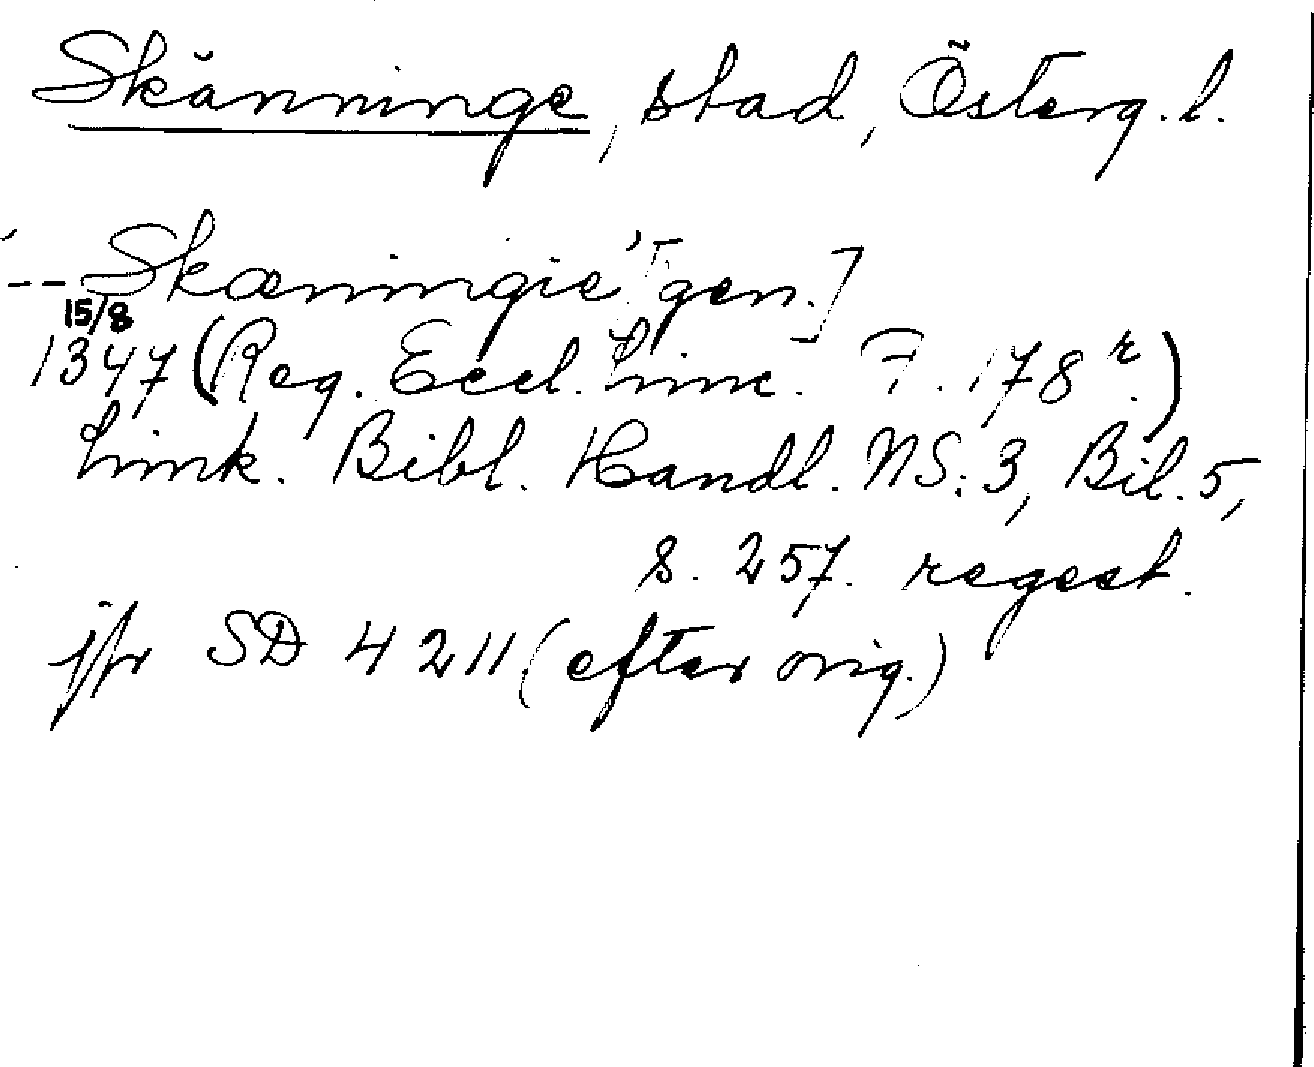 Skänninge, stad, Österg. l.
'-- Skæningie' [gen.]
15/8
1347 (Reg. Eccl. Linc. F. 178 r.)
Link. Bibl. Handl. NS: 3, Bil. 5,
s. 257. regest.
jfr SD 4211 (efter orig.)